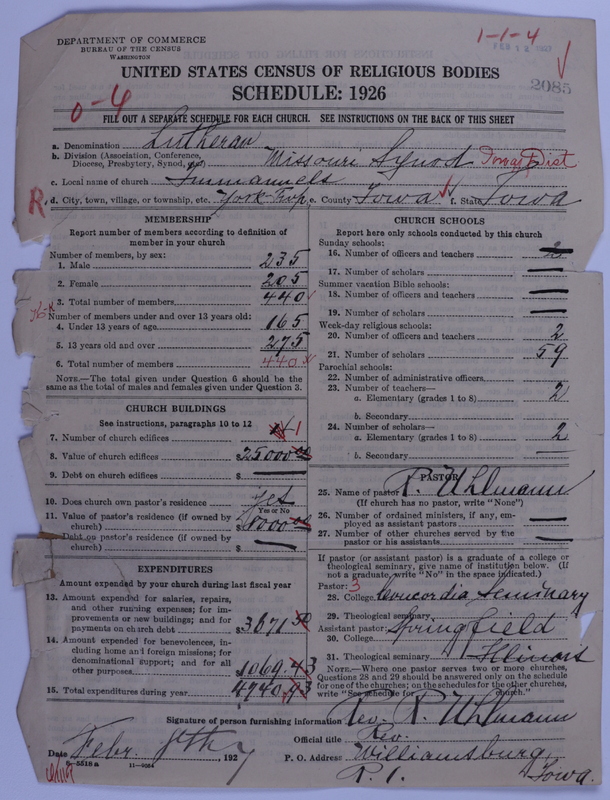 DEPARTMENT OF COMMERCE
BUREAU OF THE CENSUS
WASHINGTON
1-1-4
FEB 12 1927
2085
UNITED STATES CENSUS OF RELIGIOUS BODIES
SCHEDULE: 1926
0-4
FILL OUT A SEPARATE SCHEDULE FOR EACH CHURCH. SEE INSTRUCTIONS ON THE BACK OF THIS SHEET
a. Denomination Lutheran
b. Division (Association, Conference, Diocese, Presbytery, Synod, etc.) Missouri Synod Iowa Dist
c. Local name of church Immanuels
R d. City, town, village, or township, etc. York Twp. e. County Iowa f. State Iowa
MEMBERSHIP
Report number of members according to definition of
member in your church
Number of members, by sex:
1. Male 235
2. Female 205
3. Total number of members 440
Number of members under and over 13 years old:
4. Under 13 years of age 165
5. 13 years old and over 275
6. Total number of members 440
NOTE.—The total given under Question 6 should be the
same as the total of males and females given under Question 3.
CHURCH BUILDINGS
See instructions, paragraphs 10 to 12
7. Number of church edifices 1
8. Value of church edifices $25000.00
9. Debt on church edifices $ —
10. Does church own pastor's residence yes
Yes or No
11. Value of pastor's residence (if owned by
church) $8000.00
Debt on pastor's residence (if owned by
church) $ —
EXPENDITURES
Amount expended by your church during last fiscal year
13. Amount expended for salaries, repairs,
and other running expenses; for im-
provements or new buildings; and for
payments on church debt $3671.30
14. Amount expended for benevolences, in-
cluding home and foreign missions; for
denominational support; and for all
other purposes $1069.43
15. Total expenditures during year $4740.73
CHURCH SCHOOLS
Report here only schools conducted by this church
Sunday schools:
16. Number of officers and teachers —
17. Number of scholars —
Summer vacation Bible schools:
18. Number of officers and teachers —
19. Number of scholars —
Week-day religious schools:
20. Number of officers and teachers 2
21. Number of scholars 59
Parochial schools:
22. Number of administrative officers
23. Number of teachers—
a. Elementary (grades 1 to 8) 2
b. Secondary
24. Number of scholars—
a. Elementary (grades 1 to 8) 2
b. Secondary —
PASTOR
25. Name of pastor R. Uhlmann
(If church has no pastor, write "None")
26. Number of ordained ministers, if any, em-
ployed as assistant pastors —
27. Number of other churches served by the
pastor or his assistants —
If pastor (or assistant pastor) is a graduate of a college or
theological seminary, give name of institution below. (If
not a graduate, write "No" in the space indicated.)
Pastor: 3
28. College Concordia Seminary
29. Theological seminary
Assistant pastor: Springfield
30. College
31. Theological seminary Illinois
NOTE.—Where one pastor serves two or more churches,
Questions 28 and 29 should be answered only on the schedule
for one of the churches; on the schedules for the other churches,
write "See schedule for church."
Signature of person furnishing information Rev. R. Uhlmann
Official title Rev.
Date Febr. 8th, 1927 P. O. Address Williamsburg,
8-5518a 11-9264
R 1. Iowa.